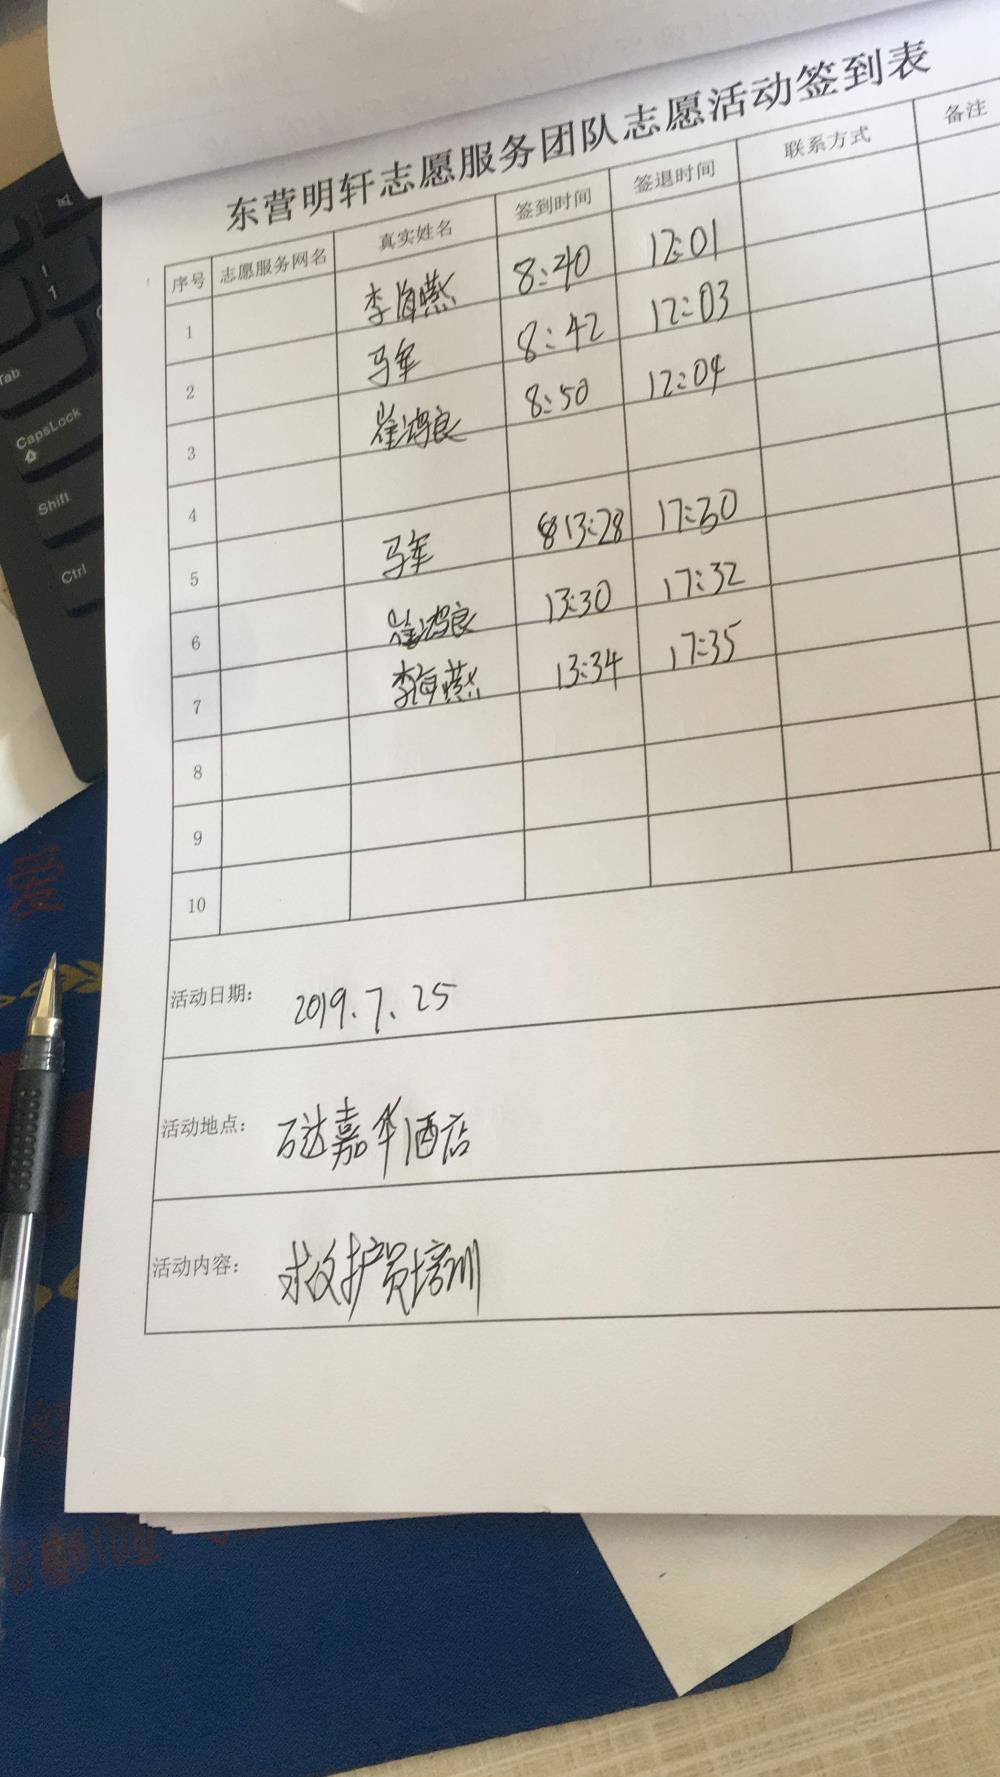 东营明轩志愿服务团队志愿活动签到表
序号 志愿服务网名 真实姓名 签到时间 签退时间 联系方式 备注
1 李海燕 8:40 12:01
2 马军 8:42 12:03
3 崔鸿良 8:50 12:04
4
5 马军 13:28 17:30
6 崔鸿良 13:30 17:32
7 李海燕 13:34 17:35
8
9
10
活动日期: 2019.7.25
活动地点: 万达嘉华酒店
活动内容: 救护员培训
Tab
CapsLock
Shift
Ctrl
爱